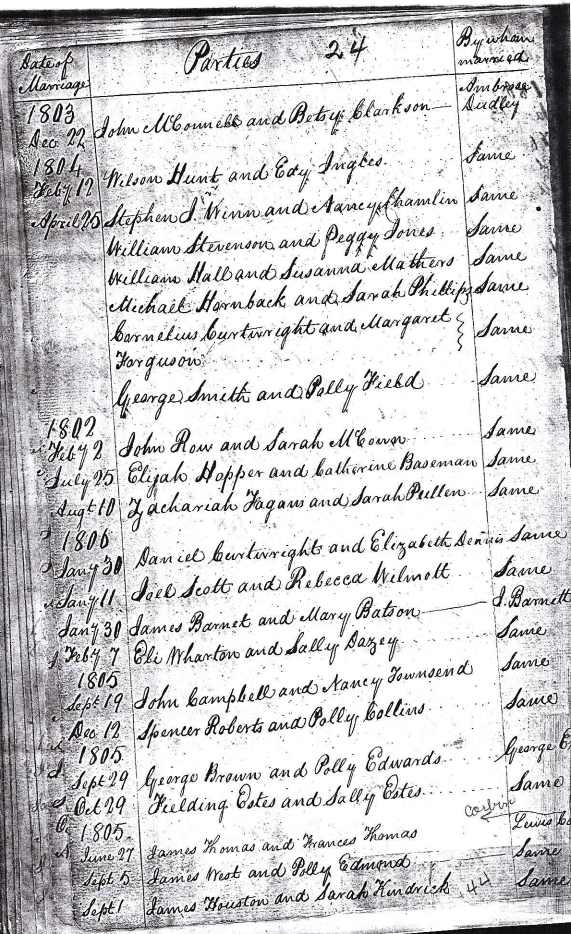 Date of Marriage Parties 24 By whom married
1803 Ambrose
Dec 22 John McConnell and Betsy Clarkson Dudley
1804
Feby 12 Wilson Hunt and Edy Ingles Same
April 25 Stephen J. Winn and Nancy Chamlin Same
William Stevenson and Peggy Jones Same
William Hall and Susanna Mathers Same
Michael Hornback and Sarah Phillips Same
Cornelius Curtwright and Margaret } Same
Forguson
George Smith and Polly Field Same
1802
Feby 2 John Row and Sarah McCown Same
July 25 Elijah Hopper and Catherine Baseman Same
Augt 10 Zachariah Fagans and Sarah Pullen Same
1806
Jany 30 Daniel Curtwrights and Elizabeth Dennis Same
Jany 11 Joel Scott and Rebecca Wilmott Same
Jany 30 James Barnet and Mary Batson J. Barnett
Feby 7 Eli Wharton and Sally Dazey Same
1805
Sept 19 John Campbell and Nancy Townsend Same
Dec 12 Spencer Roberts and Polly Collins Same
1805
Sept 29 George Brown and Polly Edwards George
Oct 29 Fielding Estes and Sally Estes Same
1805 Corbin
June 27 James Thomas and Frances Thomas Lewis
Sept 5 James West and Polly Edmond Same
Sept 1 James Houston and Sarah Kindrick 44 Same